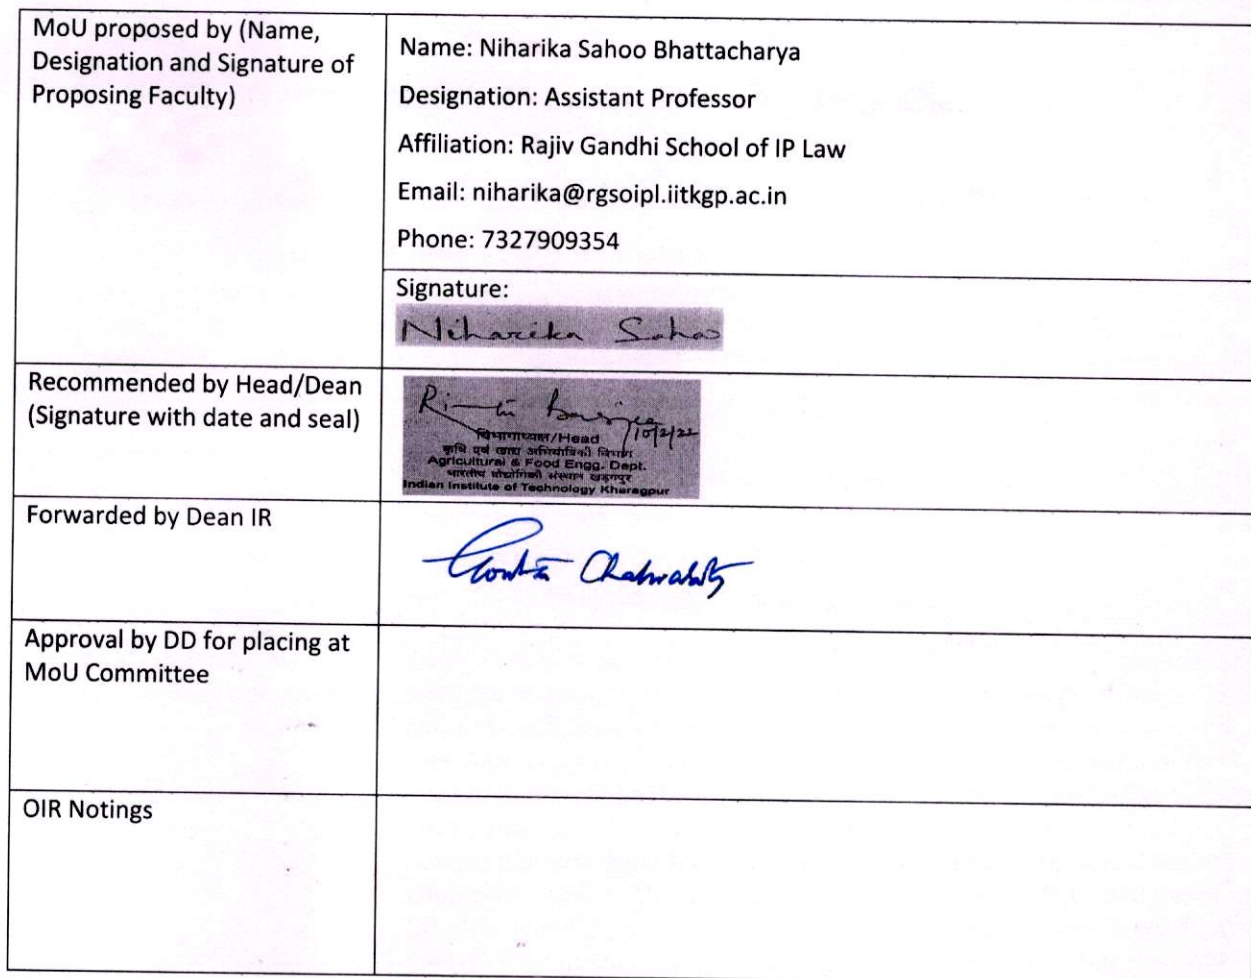 MoU proposed by (Name,
Designation and Signature of
Proposing Faculty)
Name: Niharika Sahoo Bhattacharya
Designation: Assistant Professor
Affiliation: Rajiv Gandhi School of IP Law
Email: niharika@rgsoipl.iitkgp.ac.in
Phone: 7327909354
Signature:
Niharika Sahoo
Recommended by Head/Dean
(Signature with date and seal)
10/2/22
विभागाध्यक्ष/Head
कृषि एवं खाद्य अभियांत्रिकी विभाग
Agricultural & Food Engg. Dept.
भारतीय प्रौद्योगिकी संस्थान खड़गपुर
Indian Institute of Technology Kharagpur
Forwarded by Dean IR
Approval by DD for placing at
MoU Committee
OIR Notings